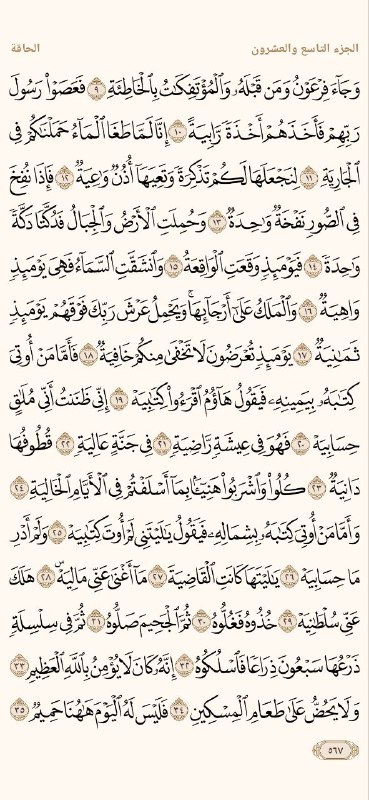 الجزء التاسع والعشرون
الحاقة
وَجَآءَ فِرۡعَوۡنُ وَمَن قَبۡلَهُۥ وَٱلۡمُؤۡتَفِكَٰتُ بِٱلۡخَاطِئَةِ ٩ فَعَصَوۡاْ رَسُولَ
رَبِّهِمۡ فَأَخَذَهُمۡ أَخۡذَةٗ رَّابِيَةً ١٠ إِنَّا لَمَّا طَغَا ٱلۡمَآءُ حَمَلۡنَٰكُمۡ فِي
ٱلۡجَارِيَةِ ١١ لِنَجۡعَلَهَا لَكُمۡ تَذۡكِرَةٗ وَتَعِيَهَآ أُذُنٞ وَٰعِيَةٞ ١٢ فَإِذَا نُفِخَ
فِي ٱلصُّورِ نَفۡخَةٞ وَٰحِدَةٞ ١٣ وَحُمِلَتِ ٱلۡأَرۡضُ وَٱلۡجِبَالُ فَدُكَّتَا دَكَّةٗ
وَٰحِدَةٗ ١٤ فَيَوۡمَئِذٖ وَقَعَتِ ٱلۡوَاقِعَةُ ١٥ وَٱنشَقَّتِ ٱلسَّمَآءُ فَهِيَ يَوۡمَئِذٖ
وَاهِيَةٞ ١٦ وَٱلۡمَلَكُ عَلَىٰٓ أَرۡجَآئِهَاۚ وَيَحۡمِلُ عَرۡشَ رَبِّكَ فَوۡقَهُمۡ يَوۡمَئِذٖ
ثَمَٰنِيَةٞ ١٧ يَوۡمَئِذٖ تُعۡرَضُونَ لَا تَخۡفَىٰ مِنكُمۡ خَافِيَةٞ ١٨ فَأَمَّا مَنۡ أُوتِيَ
كِتَٰبَهُۥ بِيَمِينِهِۦ فَيَقُولُ هَآؤُمُ ٱقۡرَءُواْ كِتَٰبِيَهۡ ١٩ إِنِّي ظَنَنتُ أَنِّي مُلَٰقٍ
حِسَابِيَهۡ ٢٠ فَهُوَ فِي عِيشَةٖ رَّاضِيَةٖ ٢١ فِي جَنَّةٍ عَالِيَةٖ ٢٢ قُطُوفُهَا
دَانِيَةٞ ٢٣ كُلُواْ وَٱشۡرَبُواْ هَنِيٓـَٔۢا بِمَآ أَسۡلَفۡتُمۡ فِي ٱلۡأَيَّامِ ٱلۡخَالِيَةِ ٢٤
وَأَمَّا مَنۡ أُوتِيَ كِتَٰبَهُۥ بِشِمَالِهِۦ فَيَقُولُ يَٰلَيۡتَنِي لَمۡ أُوتَ كِتَٰبِيَهۡ ٢٥ وَلَمۡ أَدۡرِ
مَا حِسَابِيَهۡ ٢٦ يَٰلَيۡتَهَا كَانَتِ ٱلۡقَاضِيَةَ ٢٧ مَآ أَغۡنَىٰ عَنِّي مَالِيَهۡۜ ٢٨ هَلَكَ
عَنِّي سُلۡطَٰنِيَهۡ ٢٩ خُذُوهُ فَغُلُّوهُ ٣٠ ثُمَّ ٱلۡجَحِيمَ صَلُّوهُ ٣١ ثُمَّ فِي سِلۡسِلَةٖ
ذَرۡعُهَا سَبۡعُونَ ذِرَاعٗا فَٱسۡلُكُوهُ ٣٢ إِنَّهُۥ كَانَ لَا يُؤۡمِنُ بِٱللَّهِ ٱلۡعَظِيمِ ٣٣
وَلَا يَحُضُّ عَلَىٰ طَعَامِ ٱلۡمِسۡكِينِ ٣٤ فَلَيۡسَ لَهُ ٱلۡيَوۡمَ هَٰهُنَا حَمِيمٞ ٣٥
٥٦٧